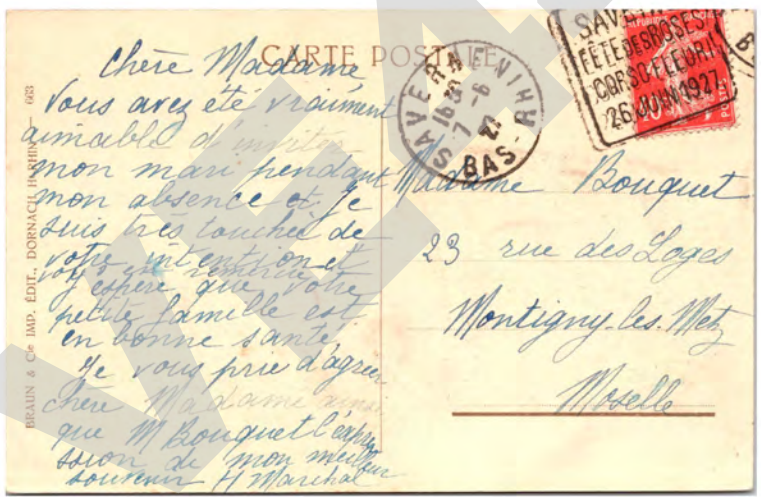 CARTE POSTALE
BRAUN & Cie IMP. ÉDIT., DORNACH H-RHIN — 663
Chère Madame
Vous avez été vraiment
aimable d'inviter
mon mari pendant
mon absence et je
suis très touchée de
votre intention et
vous en remercie
J'espère que votre
petite famille est
en bonne santé
Je vous prie d'agréer
chère Madame ainsi
que M Bouquet l'expre
ssion de mon meilleur
souvenir H Maréchal
SAVERNE
16 35
7 - 6
27
BAS-RHIN
SAVERNE
FÊTE DES ROSES
CORSO FLEURI
26 JUIN 1927
POSTES
Madame Bouquet
23 rue des Loges
Montigny-les-Metz
Moselle